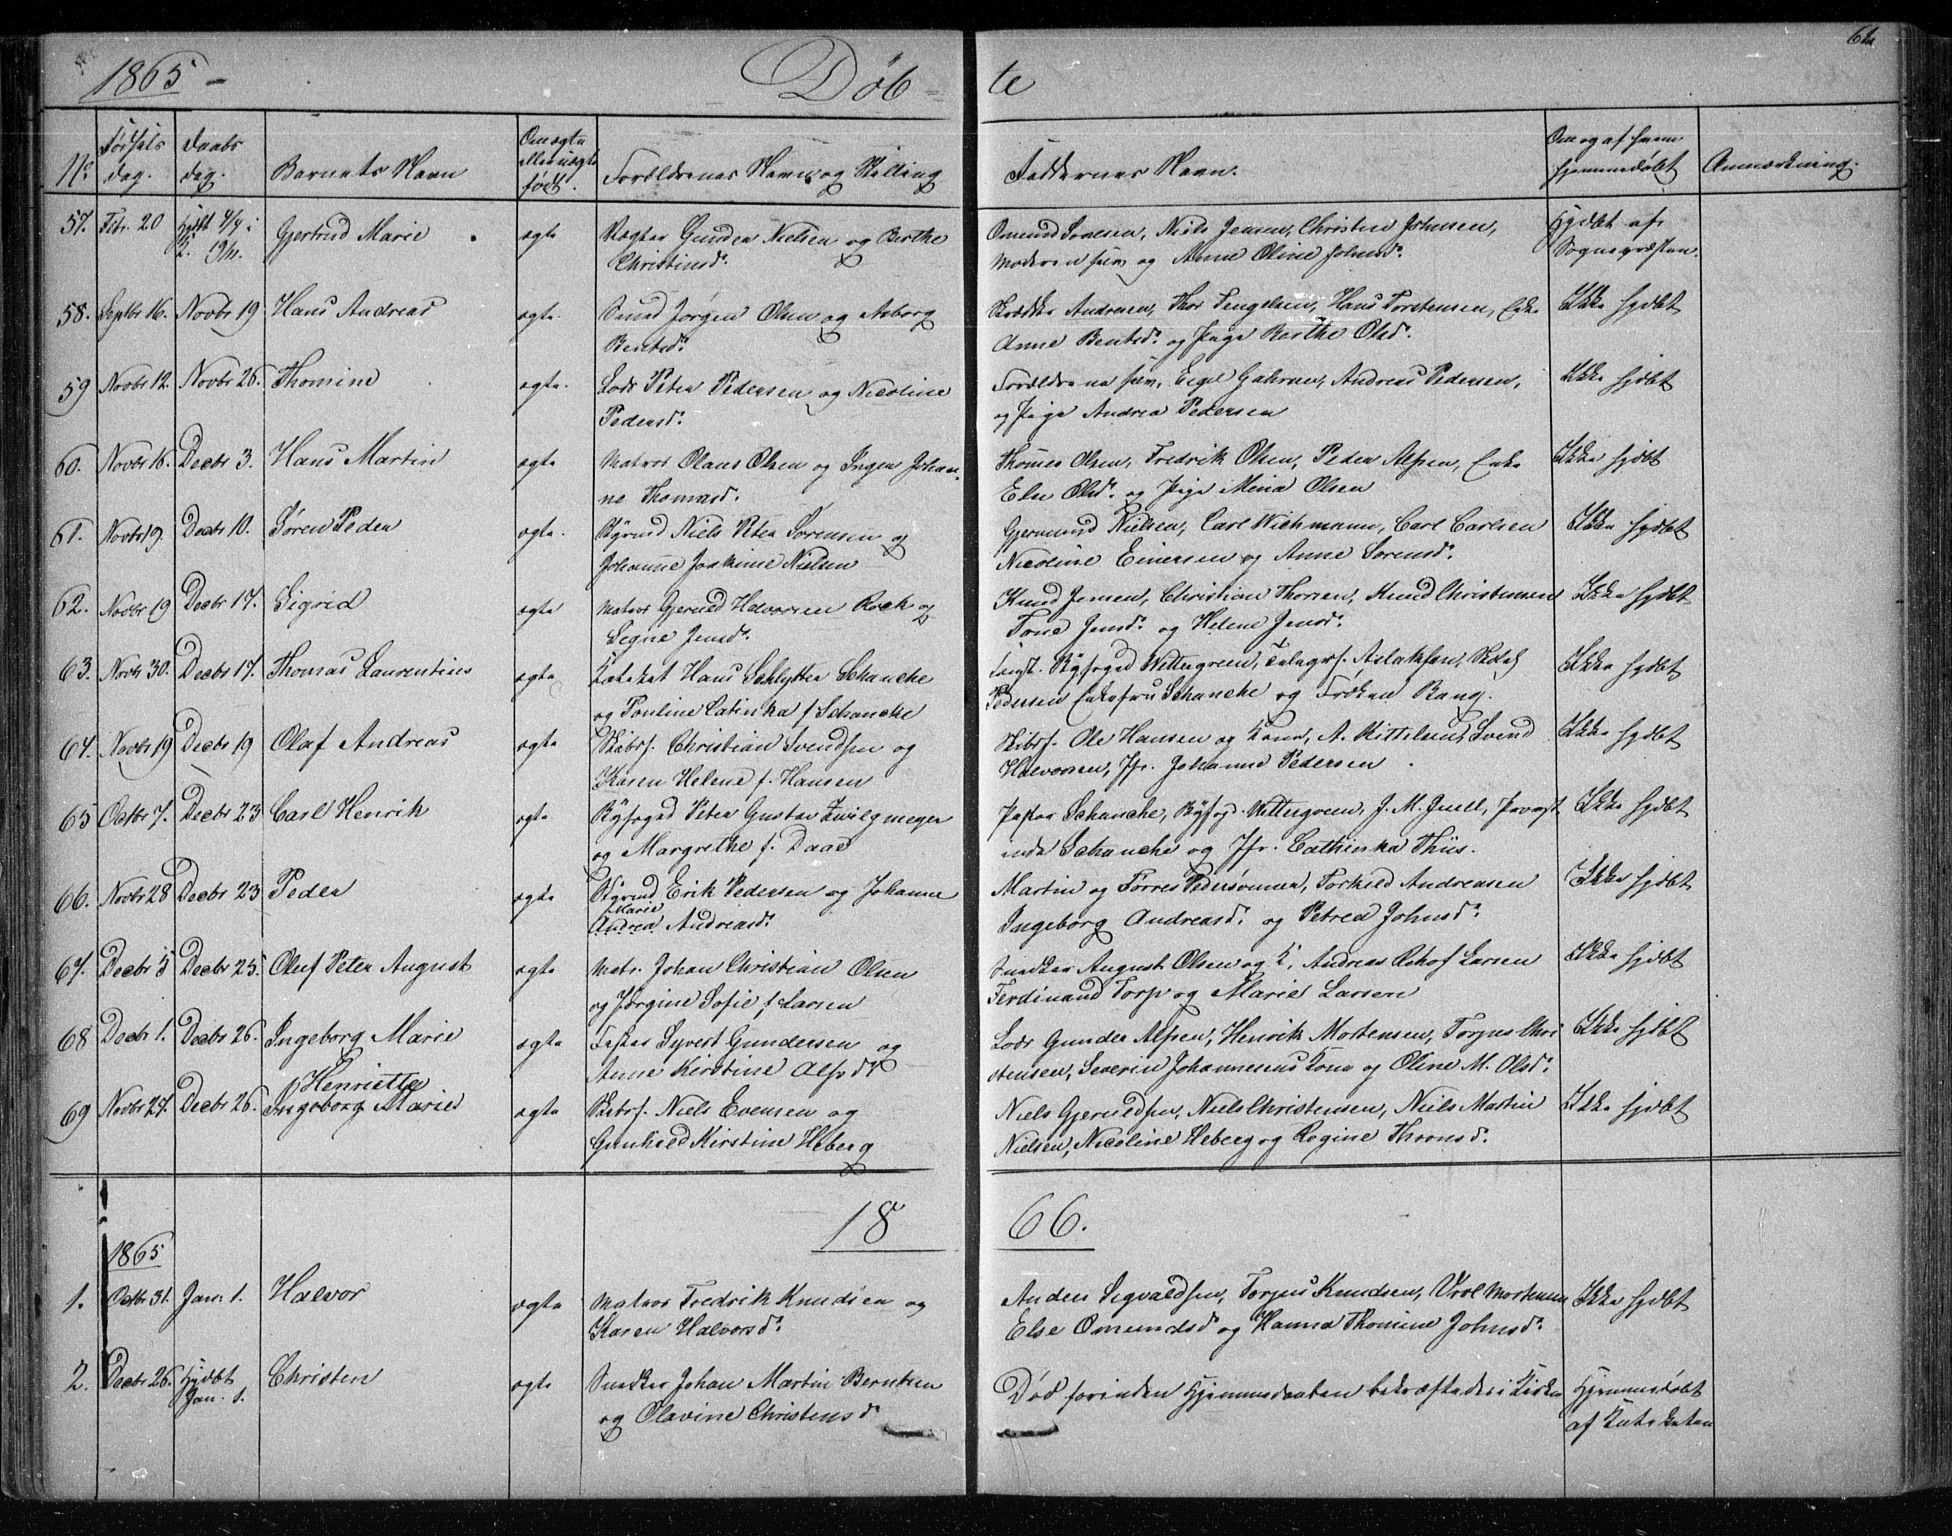 1865 - Døbte 62
No Fødsels dag. Daabs dag. Barnets Navn Om ægte eller uægte født. Forældrenes Navn og Stilling Faddernes Navn. Om og af hvem hjemmedøbt Anmærkning.
57. Febr. 20 Hjdbt Gjertrud Marie ægte Gunder Nielsen og Berthe Niels Jensen, Christen Johnsen, Hjdbt af
Christensd. Moderen selv og Anne Oline Johnsd. Sognepræsten.
58. Septbr 16. Novbr 19 Hans Andreas ægte. Smed Jørgen Olsen og Asborg Andersen, Thor Hans Torstensen, Enke Ikke hjdbt
Bentsd. Anne Bentsd. og Pige Berthe Olsd.
59 Novbr 12. Novbr 26. Thomine ægte. Lods Peter Pedersen og Nicoline Forældrene selv, Andreas Pedersen, Ikke hjdbt
Pedersd. og Pige Andrea Pedersen
60. Novbr 16. Decbr 3. Hans Martin ægte Matros Olaus Olsen og Inger Johan- Thomas Olsen, Fredrik Olsen, Peder Alfsen, Enke Ikke hjdbt
ne Thomasd. Else Olsd. og Pige Mina Olsen
61. Novbr 19. Decbr 10. Søren Peder ægte. Styrmd Niels Peter Sørensen og Gjermund Nielsen, Carl Wichmann, Carl Carlsen Ikke hjdbt
Johanne Joakime Nielsen Nicoline Einersen og Anne Sørensd.
62. Novbr 19 Decbr 17. Sigrid ægte Matros Gjeruld Halvorsen Rock og Knud Jensen, Christian Thorsen, Knud Christensen Ikke hjdbt
Signe Jensd. Tone Jensd. og Helene Jensd.
63. Novbr 30. Decbr 17. Thomas Laurentius ægte Kateket Hans Schlytter Schanche Byfoged Wettergreen, Telegrf. Aslaksen, Ikke hjdbt
og Pouline Catinka f. Schanche Pedersen Enkefru Schanche og Frøken Bang.
64. Novbr 19 Decbr 19 Olaf Andreas ægte Skibsf. Christian Svendsen og Skibsf. Ole Hansen og Kone, A. Kittelsen, Svend Ikke hjdbt
Karen Helene f. Hansen Halvorsen, Jfr. Johanne Pedersen
65 Octbr 7. Decbr 23 Carl Henrik ægte Byfoged Peter Gustav Zwilgmeyer Pastor Schanche, Byfogd. Wettergreen, J. M. Juell, Provst- Ikke hjdbt
og Margrethe f. Daae inde Schanche og Jfr. Cathinka Thiis.
66. Novbr 28 Decbr 23 Peder ægte Styrmd Erik Pedersen og Johanne Martin og Torres Pedersønner, Torkild Andreasen Ikke hjdbt
Marie
Andrea Andreasd. Ingeborg Andreasd. og Petrea Johnsd.
67. Decbr 5 Decbr 25. Oluf Peter August ægte Matr. Johan Christian Olsen Snedker August Olsen og K, Andreas Larsen Ikke hjdbt
og Jørgine Sofie f. Larsen Ferdinand Torp og Marie Larsen
68 Decbr 1. Decbr 26. Ingeborg Marie ægte Syvert Gundersen og Lods Gunder Alfsen, Henrik Mortensen, Torjus Chri- Ikke hjdbt
Anne Kirstine Alfsd. stensen, Severin Johannesens Kone og Oline M. Olsd.
Henriette
69 Novbr 27. Decbr 26. Ingeborg Marie ægte Skibsf. Niels Evensen og Niels Gjeruldsen, Niels Christensen, Niels Martin Ikke hjdbt
Gunhild Kirstine Heberg Nielsen, Nicoline Heberg og Regine Thronsd.
1866.
1865
1. Octbr 31. Jan. 1. Halvor ægte Matros Fredrik Knudsen og Anders Sigvaldsen, Torjus Knudsen, Mortensen Ikke hjdbt
Karen Halvorsd. Else Omundsd. og Hanna Thomine Johnsd.
2. Decbr 26. Hjdbt Christen ægte Snedker Johan Martin Berntsen Død forinden Hjemmedaaben bekræftedes i Kirken Hjemmedøbt
Jan. 1. og Olavine Christensd. af Kateketen